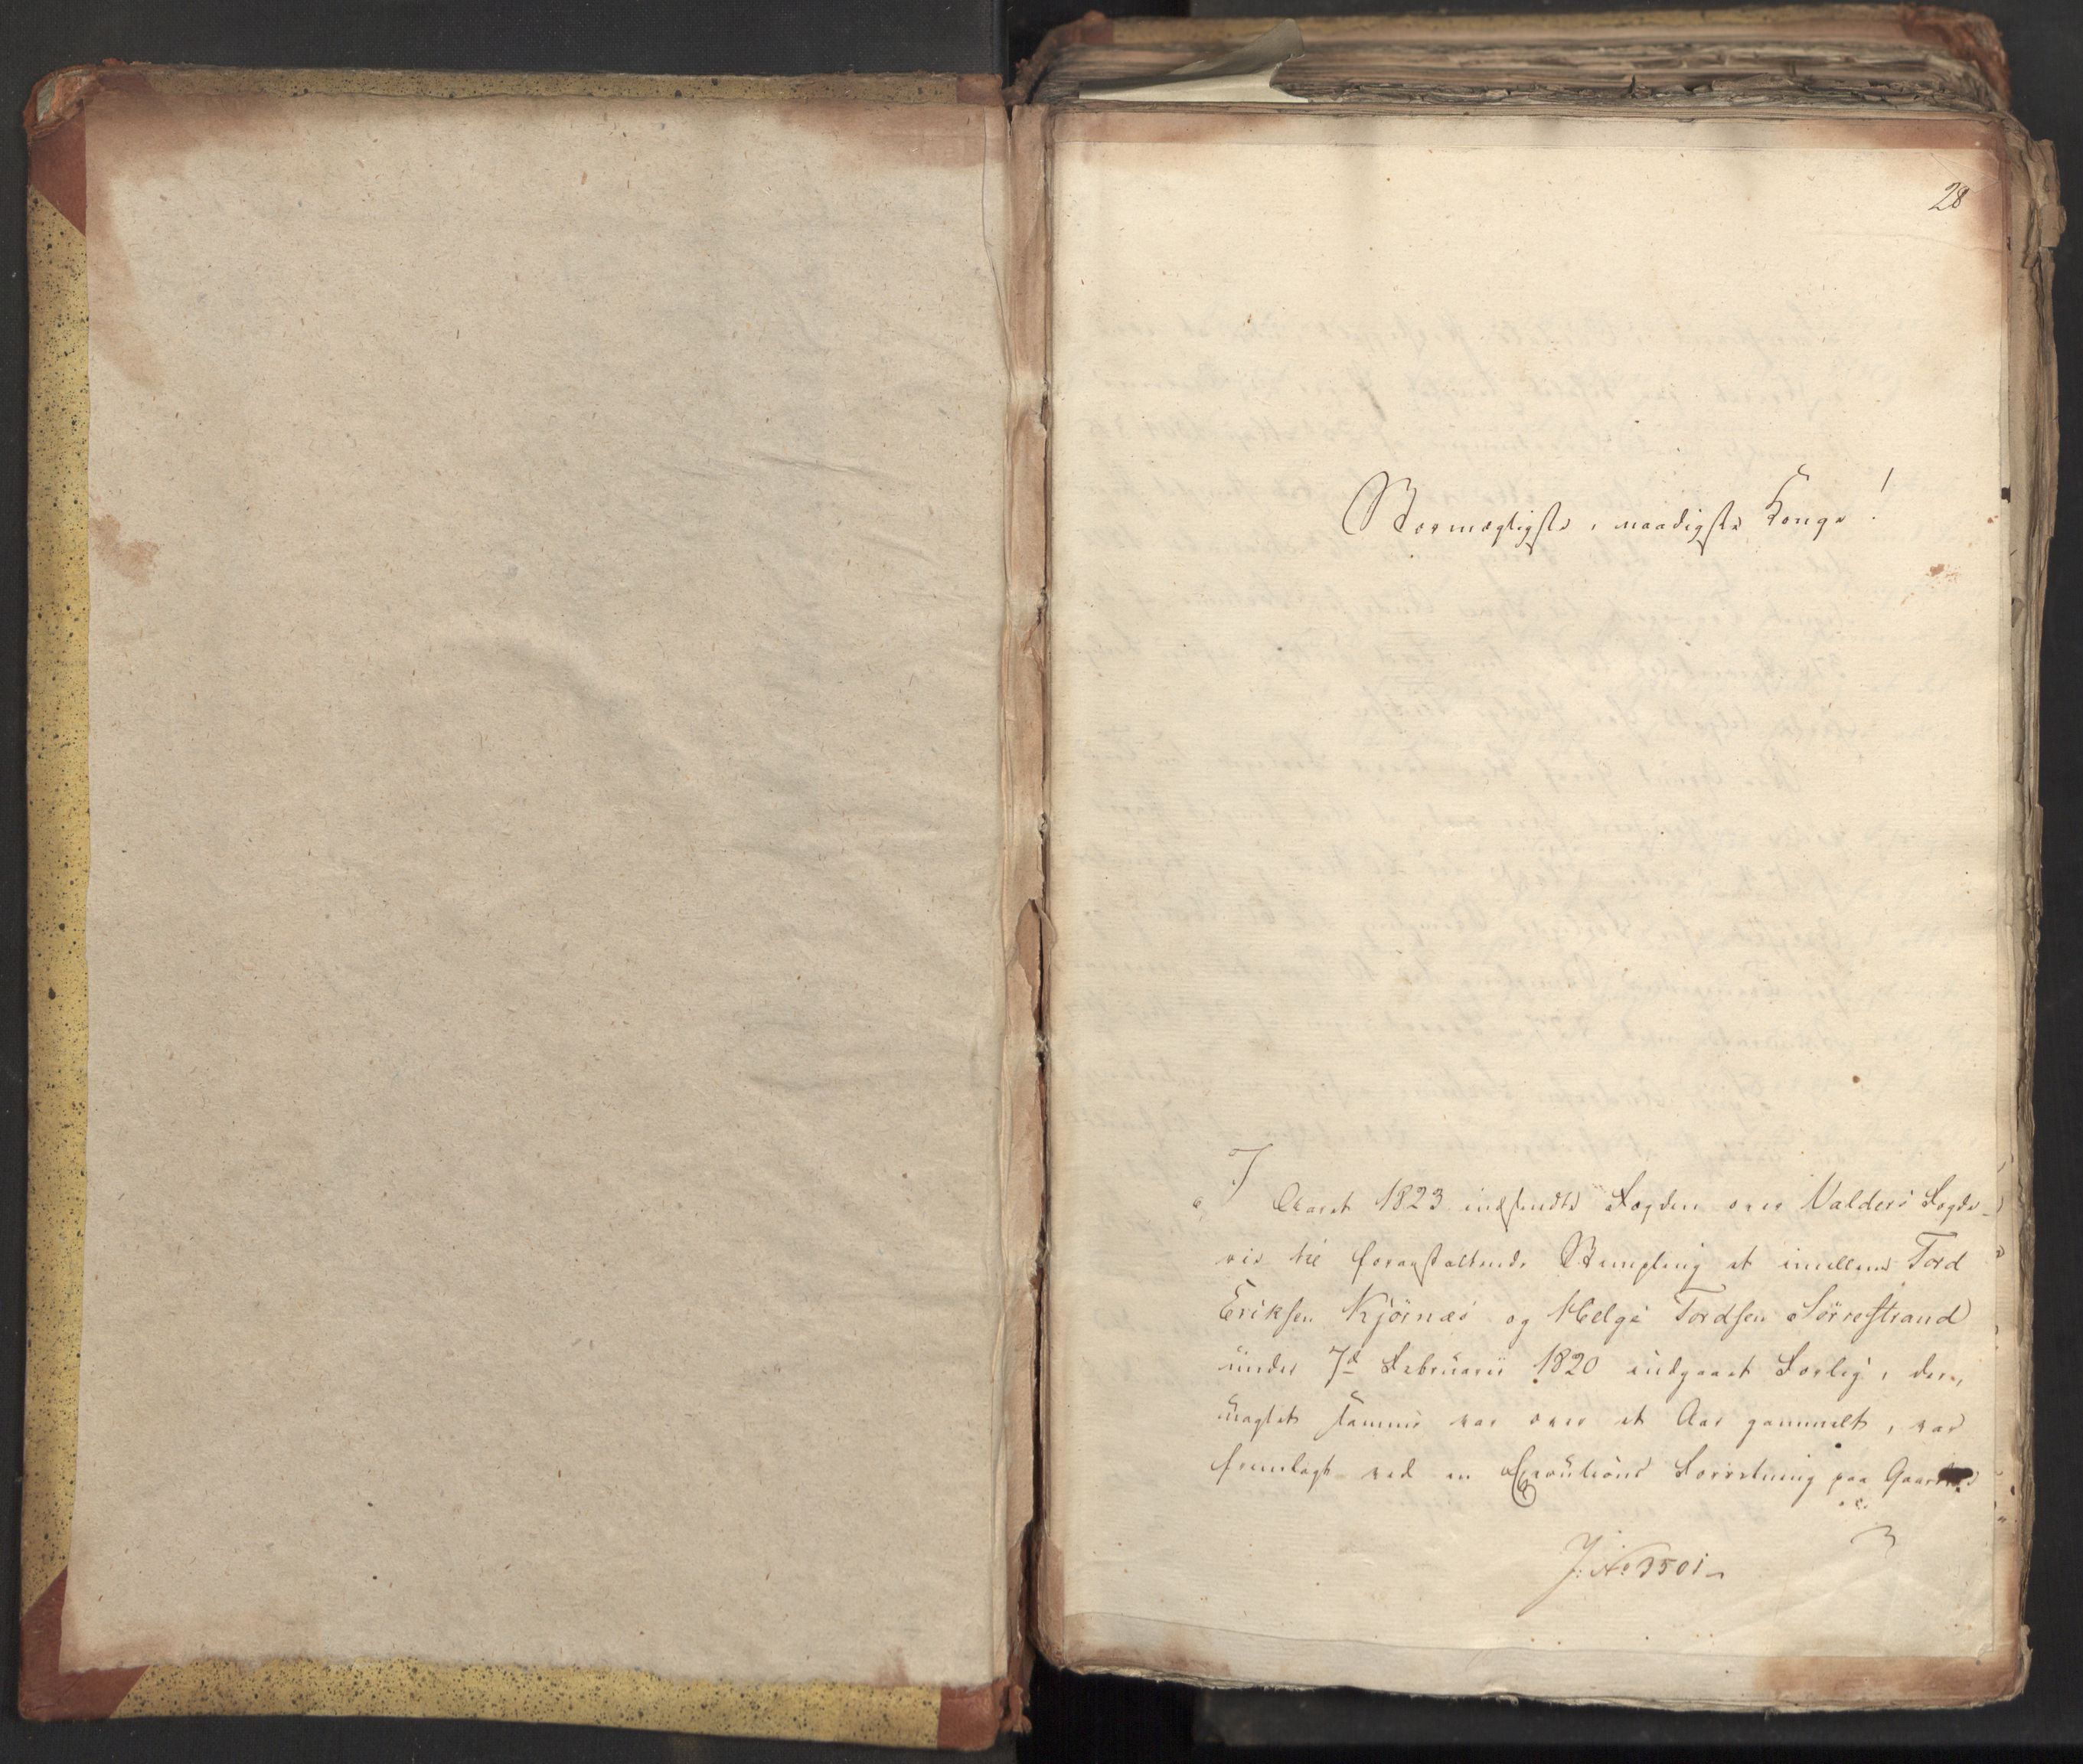 28
Stormægtigste, naadigste Konge!
I
Aaret 1823 indsendte Fogden over Valders Fogde-
rie til foranstaltende Stempling et imellem Tord
Eriksen Kjörnæs og Helge Tordsen Sörrestrand
under 7d Februarii 1820 indgaaet Forlig, der,
uagtet samme var over et Aar gammelt, var
fremlagt ved en Executions Forretning paa Gaarden
J: No 3501